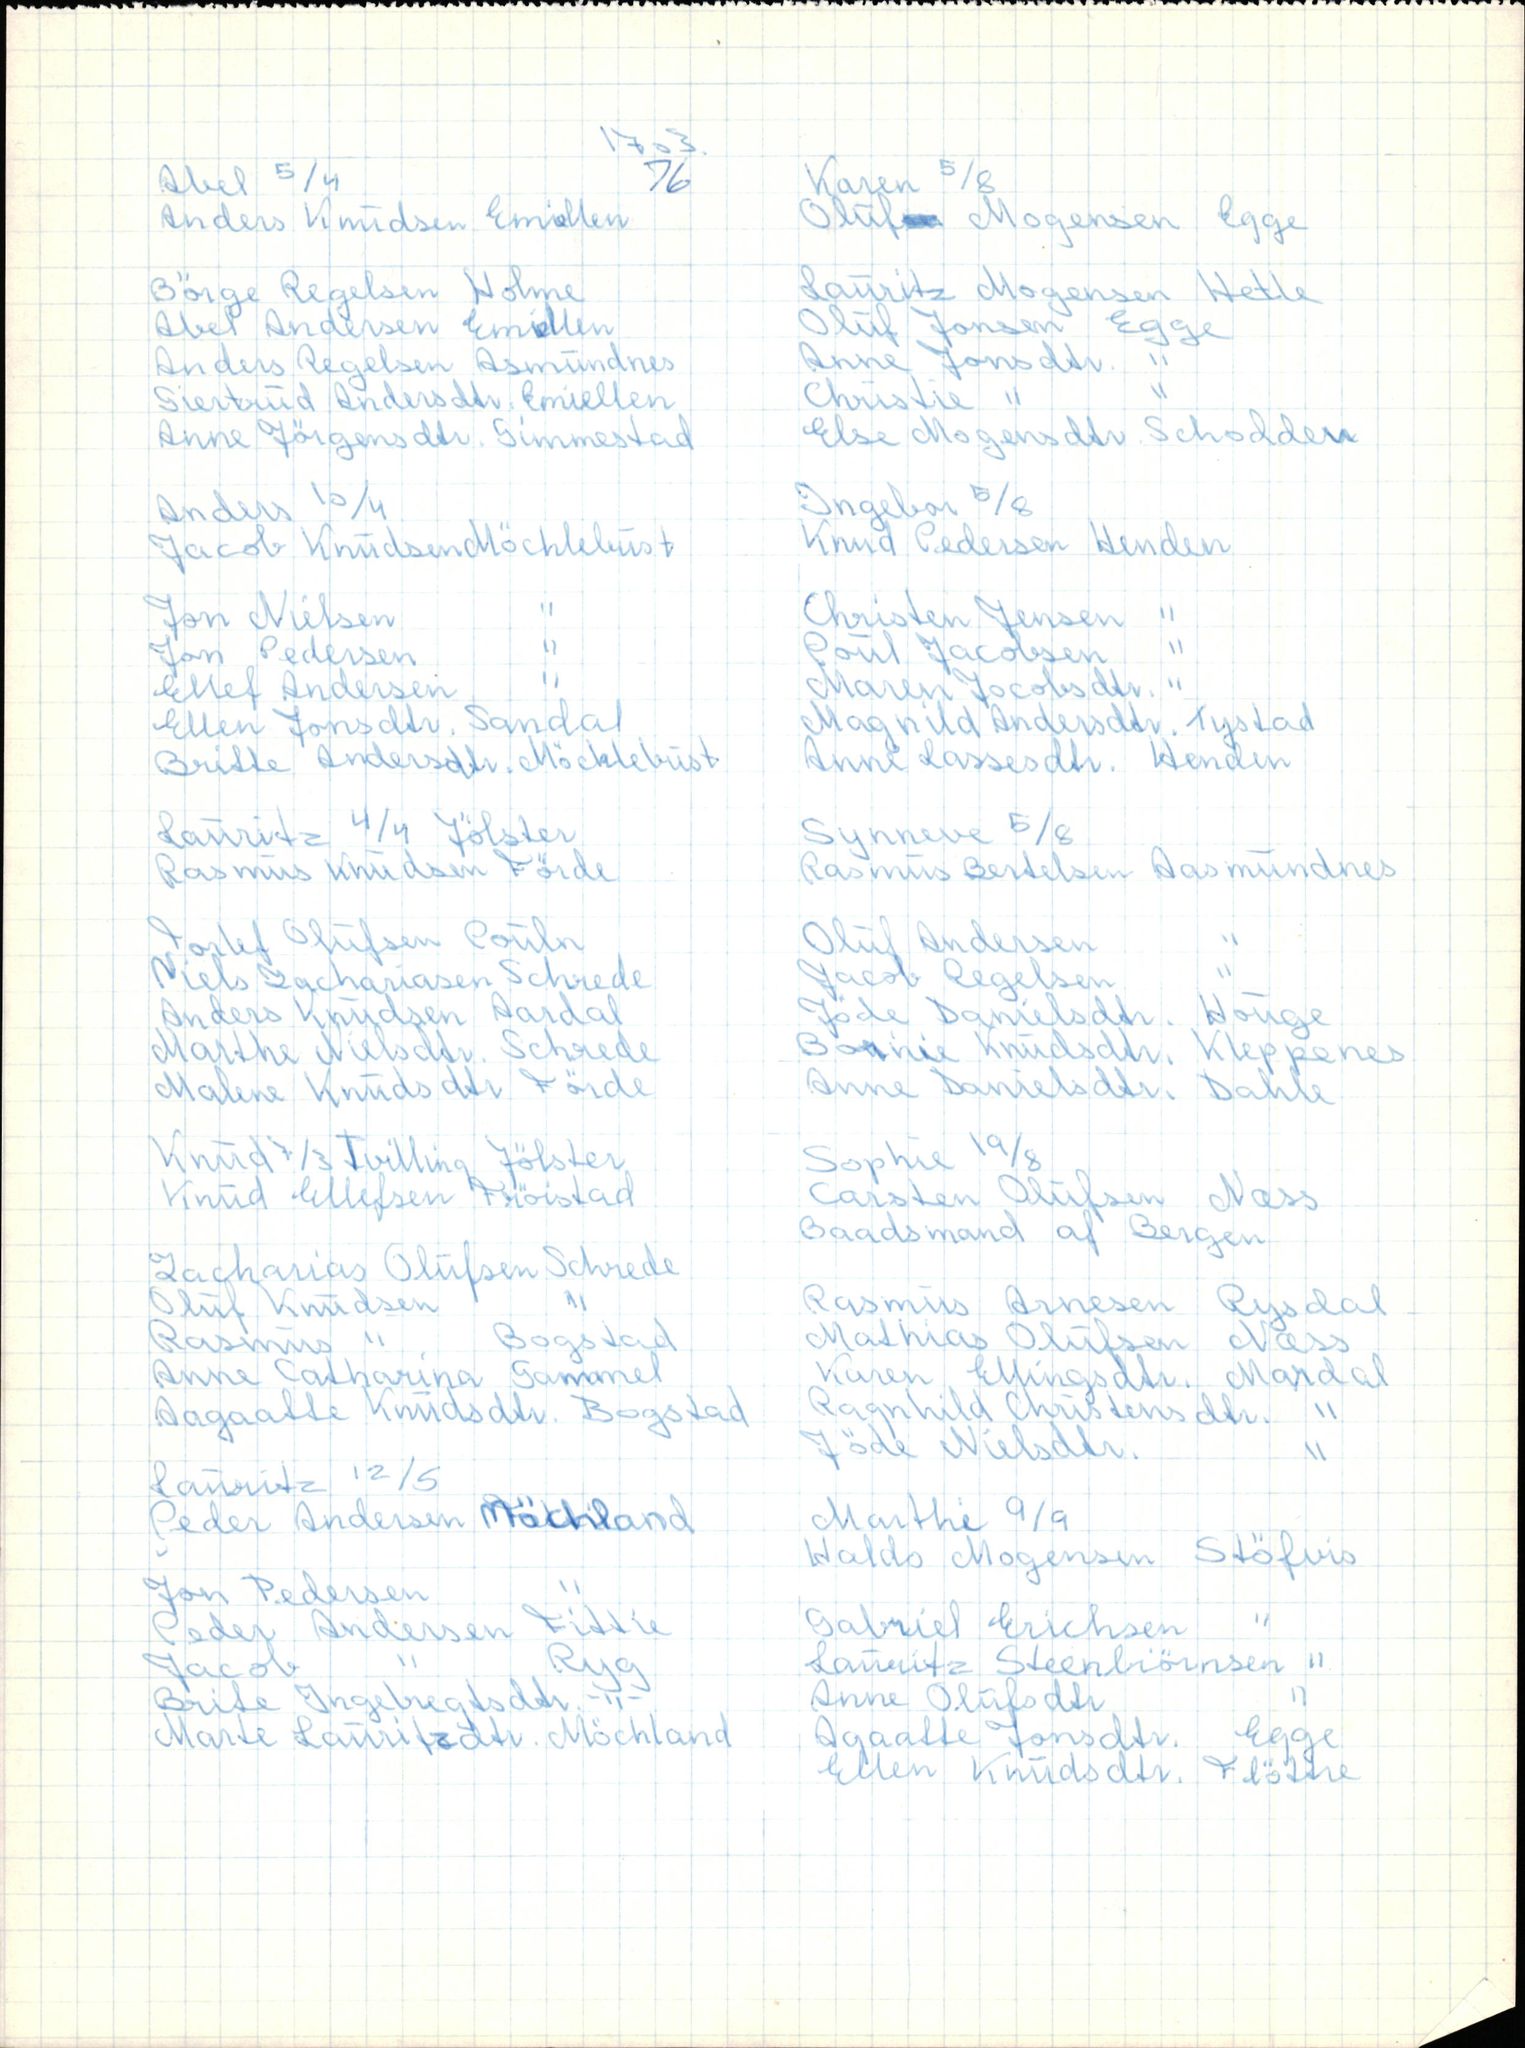 1703.
76
Abel 5/4
Anders Knudsen Emiellen
Börge Regelsen Holme
Abel Andersen Emiellen
Anders Regelsen Asmundnes
Giertrud Andersdtr. Emiellen
Anne Jörgensdtr. Gimmestad
Anders 10/4
Jacob Knudsen Möchlebust
Jon Nielsen "
Jon Pedersen "
Ellef Andersen "
Ellen Jonsdtr. Sandal
Britte Andersdtr. Möchlebust
Lauritz 4/4 Jölster
Rasmus Knudsen Förde
Olufsen
Niels Zachariasen Schrede
Anders Knudsen Aardal
Marthe Nielsdtr. Schrede
Malene Knudsdtr Förde
Knud 7/3 Tvilling Jölster
Knud Ellefsen Fröistad
Zacharias Olufsen Schrede
Oluf Knudsen "
Rasmus " Bogstad
Anne Catharina Gammel
Aagaatte Knudsdtr. Bogstad
Lauritz 12/5
Peder Andersen Möchland
Jon Pedersen "
Peder Andersen Fittie
Jacob " Ryg
Brite Ingebregtsdtr. -"-
Marte Lauritzdtr. Möchland
Karen 5/8
Oluf Mogensen Egge
Lauritz Mogensen Hetle
Oluf Jonsen Egge
Anne Jonsdtr. "
Christie " "
Else Mogensdtr. Schodden
Ingebor 5/8
Knud Pedersen Henden
Christen Jensen "
Poul Jacobsen "
Maren Jacobsdtr. "
Magnild Andersdtr. Tystad
Anne Lassesdtr. Henden
Synneve 5/8
Rasmus Bertelsen Aasmundnes
Oluf Andersen "
Jacob Regelsen "
Jöde Danielsdtr. Houge
Knudsdtr. Kleppenes
Anne Danielsdtr. Dahle
Sophie 19/8
Carsten Olufsen Næss
Baadsmand af Bergen
Rasmus Arnesen Rysdal
Mathias Olufsen Næss
Karen Ellingsdtr. Mardal
Ragnhild Christensdtr. "
Jöde Nielsdtr. "
Marthe 9/9
Haldo Mogensen Stöfvis
Gabriel Erichsen "
Lauritz Steenbiörnsen "
Anne Olufsdtr "
Agaatte Jonsdtr. Egge
Ellen Knudsdtr. Flöttre